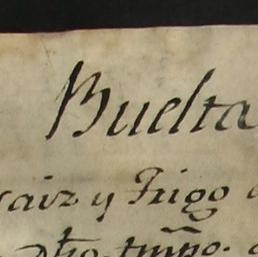 Buelta
maiz y Trigo
dho. tmpo.